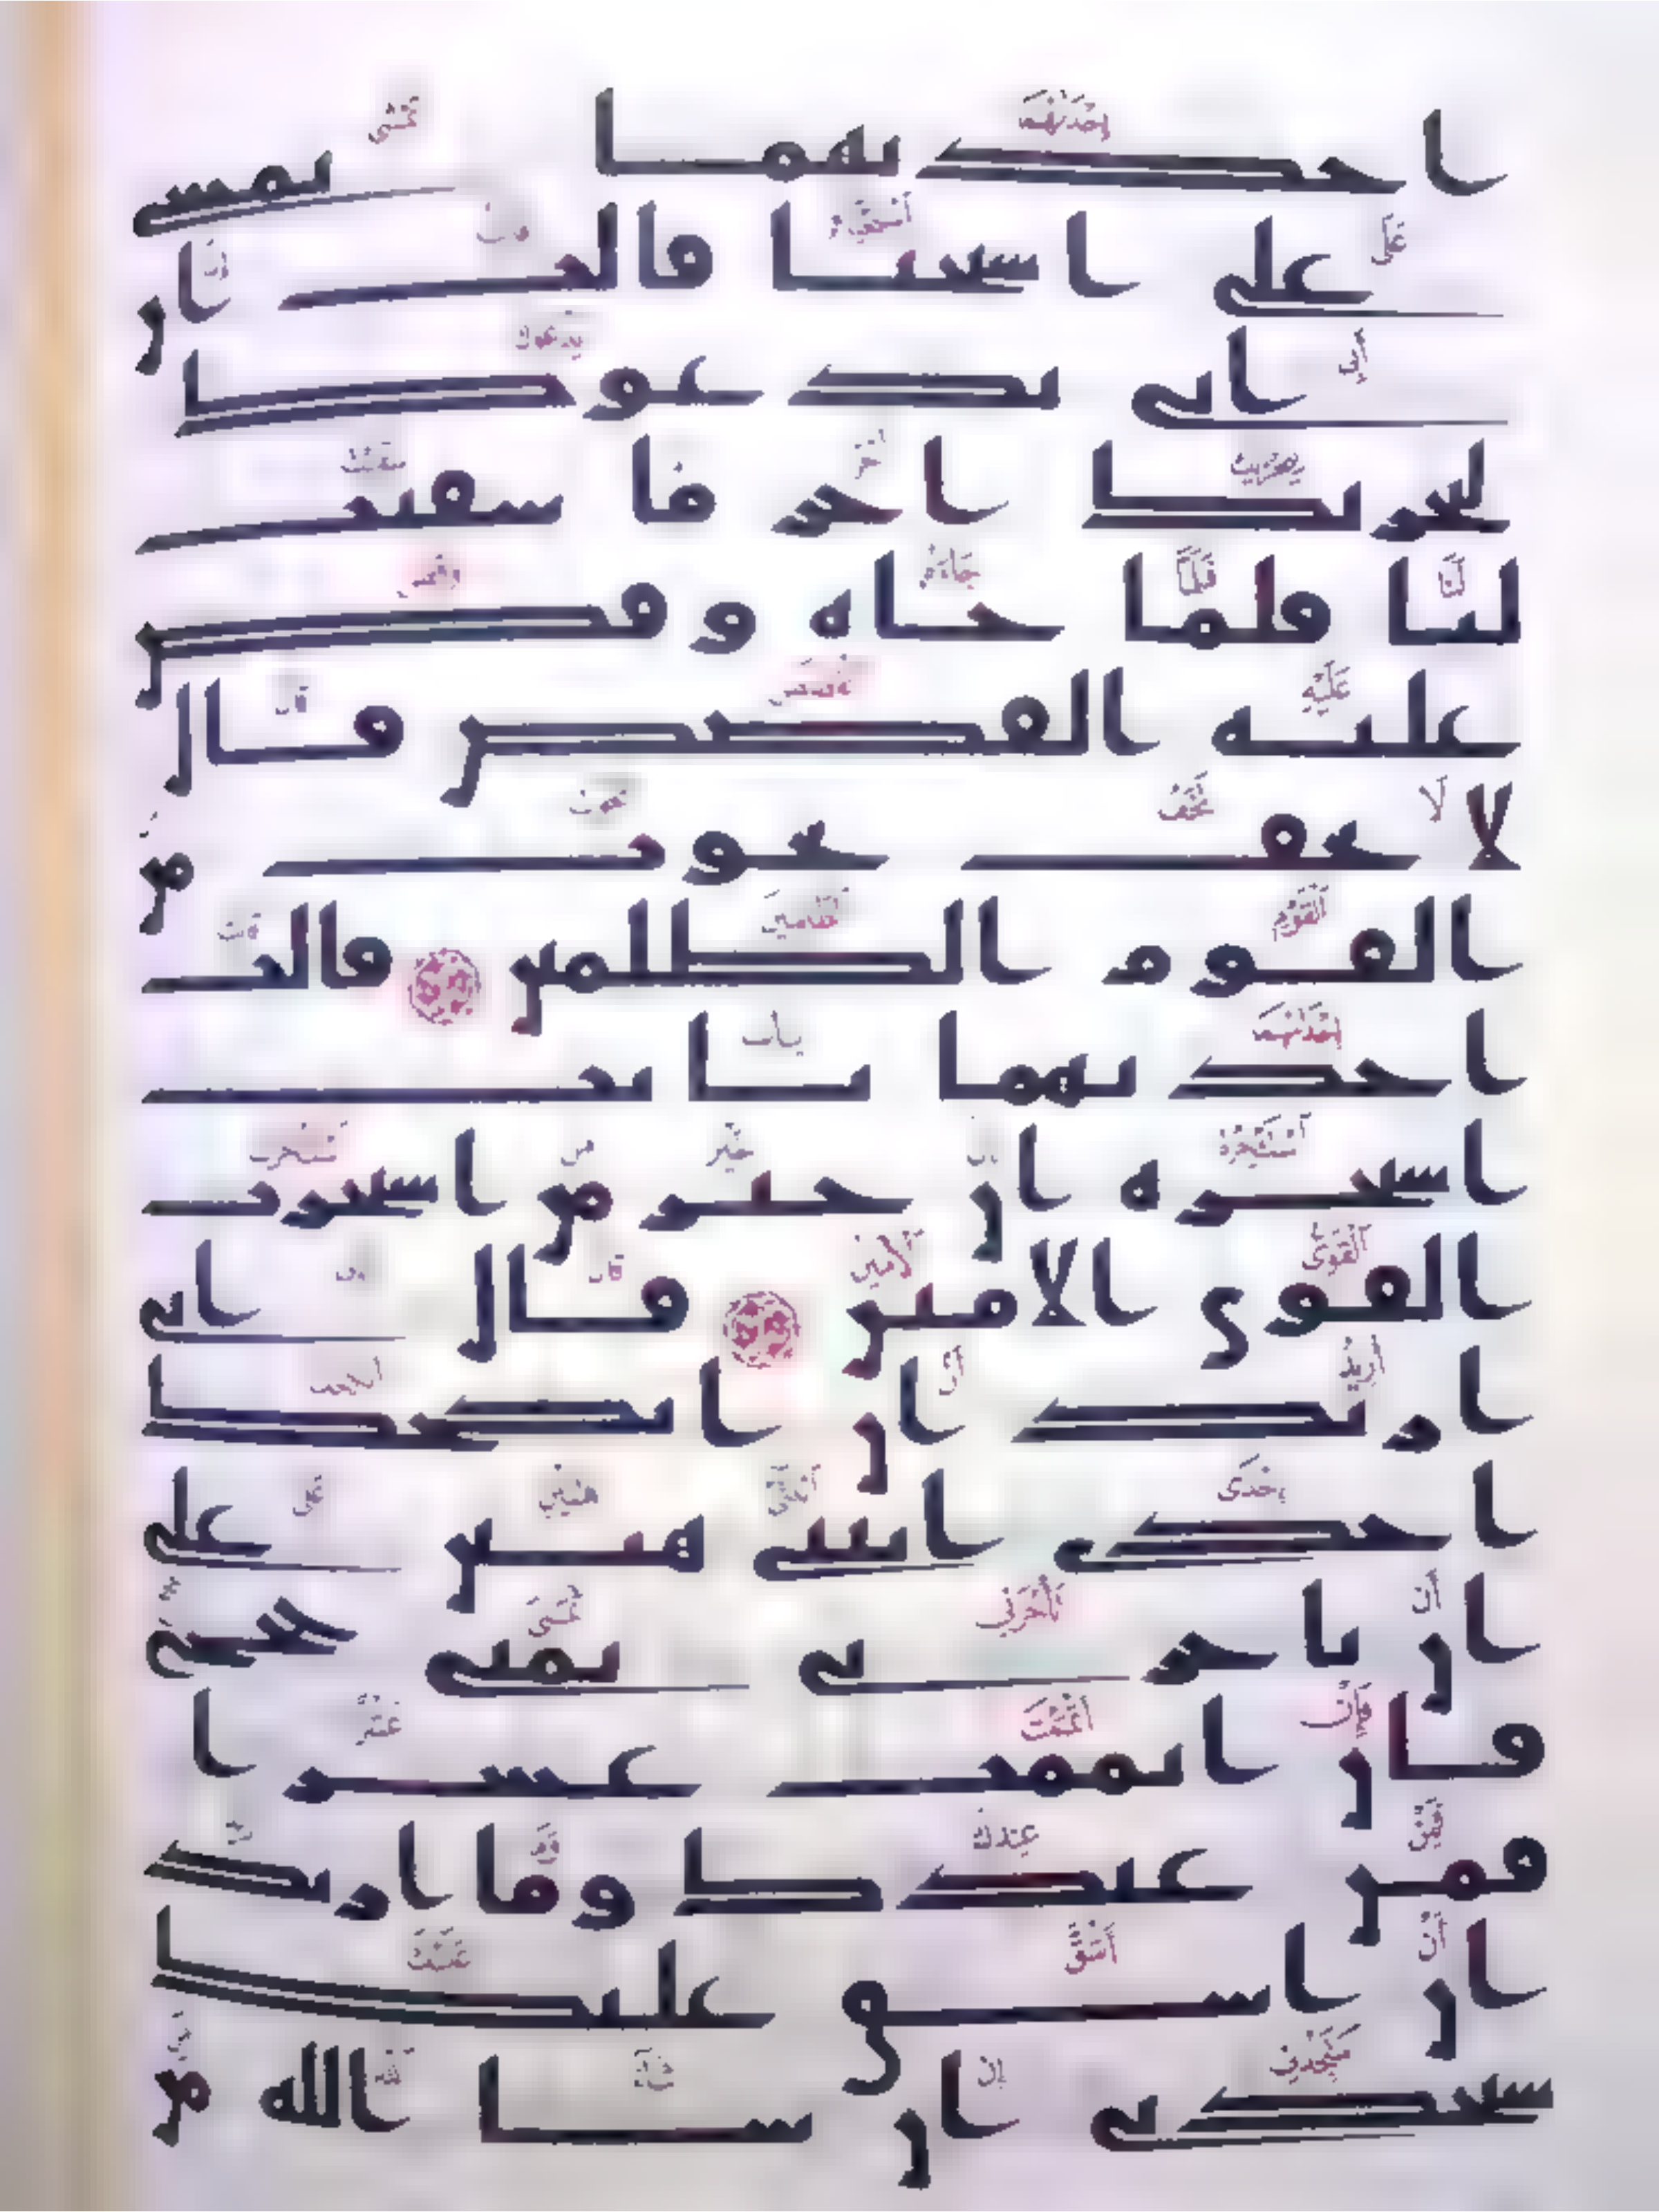 احدىهما تمشى
على استحيا قالت ان
ابى يدعوك
ليجزيك اجر ما سقيت
لنا فلما جاه وقص
عليه القصص قال
لا تخف نجوت من
القوم الظلمين قالت
احدىهما يابت
استجره ان خير من استجرت
القوى الامين قال انى
اريد ان انكحك
احدى ابنتى هتين على
ان تاجرنى ثمنى حجج
فان اتممت عشرا
فمن عندك وما اريد
ان اشق عليك
ستجدنى ان شا الله من